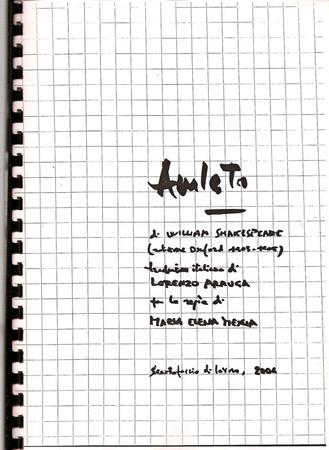 Amleto
di WILLIAM SHAKESPEARE
(edizione Oxford
traduzione italiana di
LORENZO ARRUGA
per la regia di
MARIA ELENA MEXIA
Scartafaccio di lavoro, 2004